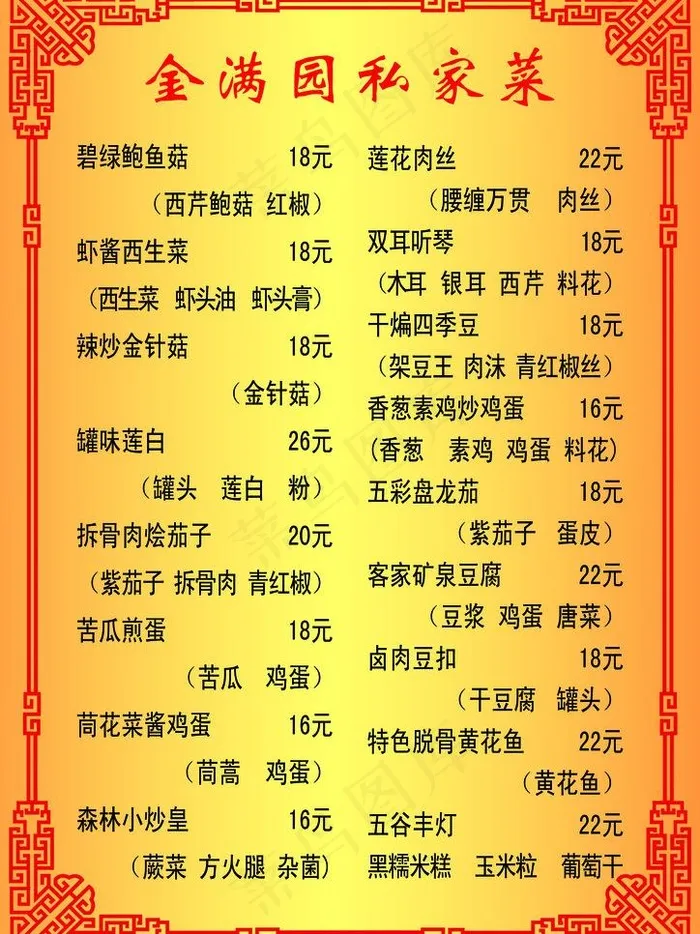 金满园私家菜
碧绿鲍鱼菇 18元
（西芹鲍菇 红椒）
虾酱西生菜 18元
（西生菜 虾头油 虾头膏）
辣炒金针菇 18元
（金针菇）
罐味莲白 26元
（罐头 莲白 粉）
拆骨肉烩茄子 20元
（紫茄子 拆骨肉 青红椒）
苦瓜煎蛋 18元
（苦瓜 鸡蛋）
茼花菜酱鸡蛋 16元
（茼蒿 鸡蛋）
森林小炒皇 16元
（蕨菜 方火腿 杂菌）
莲花肉丝 22元
（腰缠万贯 肉丝）
双耳听琴 18元
（木耳 银耳 西芹 料花）
干煸四季豆 18元
（架豆王 肉沫 青红椒丝）
香葱素鸡炒鸡蛋 16元
(香葱 素鸡 鸡蛋 料花)
五彩盘龙茄 18元
（紫茄子 蛋皮）
客家矿泉豆腐 22元
（豆浆 鸡蛋 唐菜）
卤肉豆扣 18元
（干豆腐 罐头）
特色脱骨黄花鱼 22元
（黄花鱼）
五谷丰灯 22元
黑糯米糕 玉米粒 葡萄干
菜鸟图库
菜鸟图库
菜鸟图库